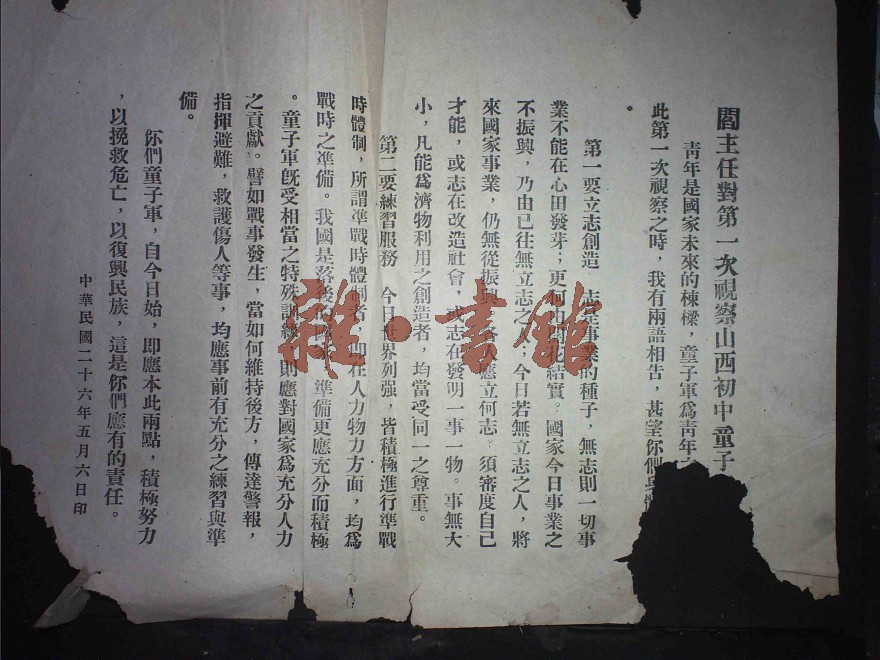 閻主任對第一次視察山西初中童子
青年是國家未來的棟樑，童子軍爲青年
此第一次視察之時，我有兩語相告，甚望你們
。
第一要立志創造　志是事業的種子，無志則一切事
業不能在心田發芽；更何　開花結實。國家今日事業之
不振興，乃由已往無立志之人；今日若無立志之人，將
來國家事業，仍無從振興　應立何志。須審度自己
才能，或志在改造社會，或志在發明一事一物。事無大
小，凡能爲濟物利用之創造者，均當受同一之尊重。
第二要練習服務　今日世界列强，皆積極進行準戰
時體制，所謂準戰時體制者，卽在人力物力方面，均爲
戰時之準備。我國是落後　準備更應充分而積極
。童子軍旣受相當之特殊訓練，則應對國家爲充分人力
之貢獻。譬如戰事發生，當如何維持後方，傳達警報，
指揮避難，救護傷人等事，均應事前有充分之練習與準
備。
你們童子軍，自今日始，即應本此兩點，積極努力
，以挽救危亡，以復興民族，這是你們應有的責任。
中華民國二十六年五月六日印
雜·書館